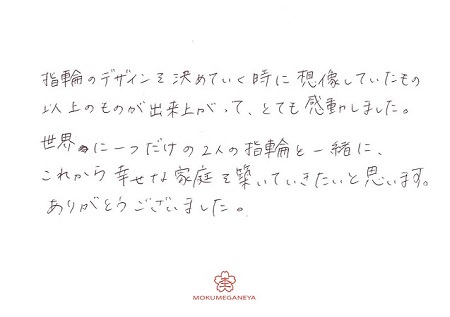 指輪のデザインを決めていく時に想像していたもの
以上のものが出来上がって、とても感動しました。
世界に一つだけの2人の指輪と一緒に、
これから幸せな家庭を築いていきたいと思います。
ありがとうございました。
MOKUMEGANEYA